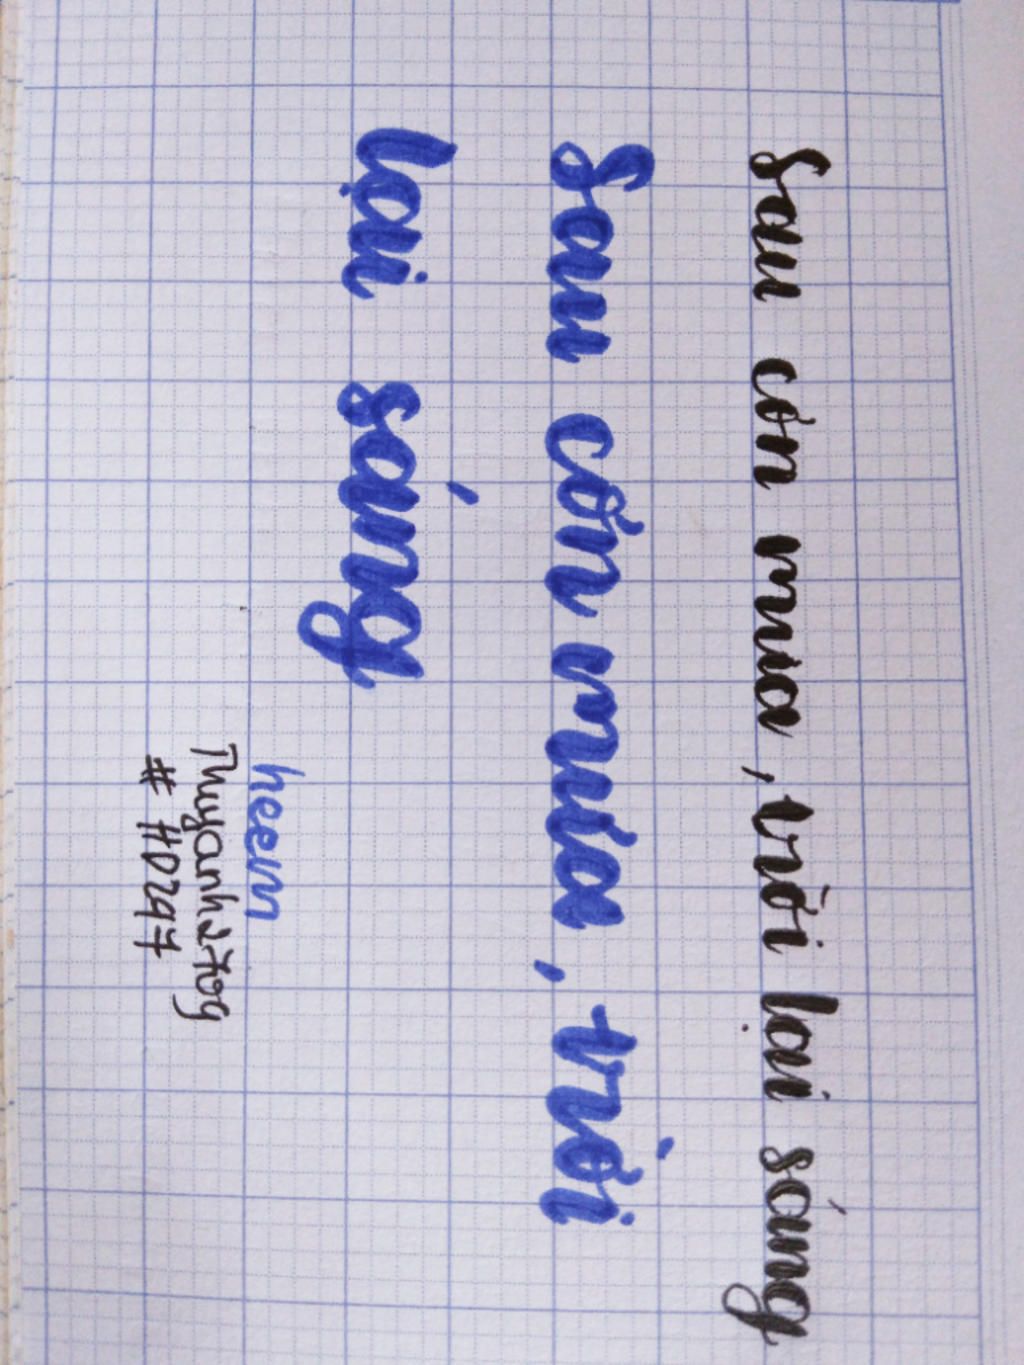 Sau cơn mưa, trời lại sáng
Sau cơn mưa, trời
lại sáng
heem
Thuyanh2709